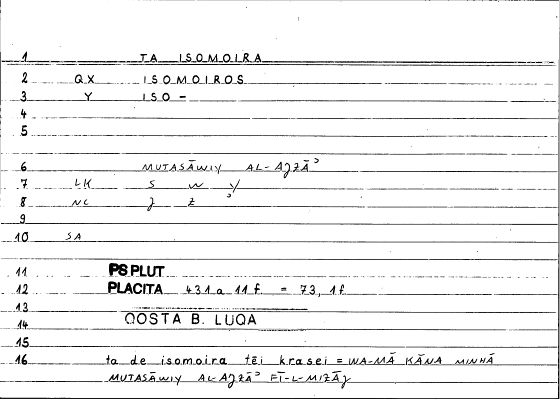 1 TA ISOMOIRA
2 QX ISOMOIROS
3 Y ISO-
4
5
6 MUTASĀWIY AL-AJZĀʾ
7 LK S W Y
8 NC J Z ʾ
9
10 SA
11 PSPLUT
12 PLACITA 431a 11f. = 73,1f
13
14 QOSTA B. LUQA
15
16 ta de isomoira tēi krasei = WA-MĀ KĀNA MINHĀ
MUTASĀWIY AL-AJZĀʾ FĪ-L-MIZĀJ